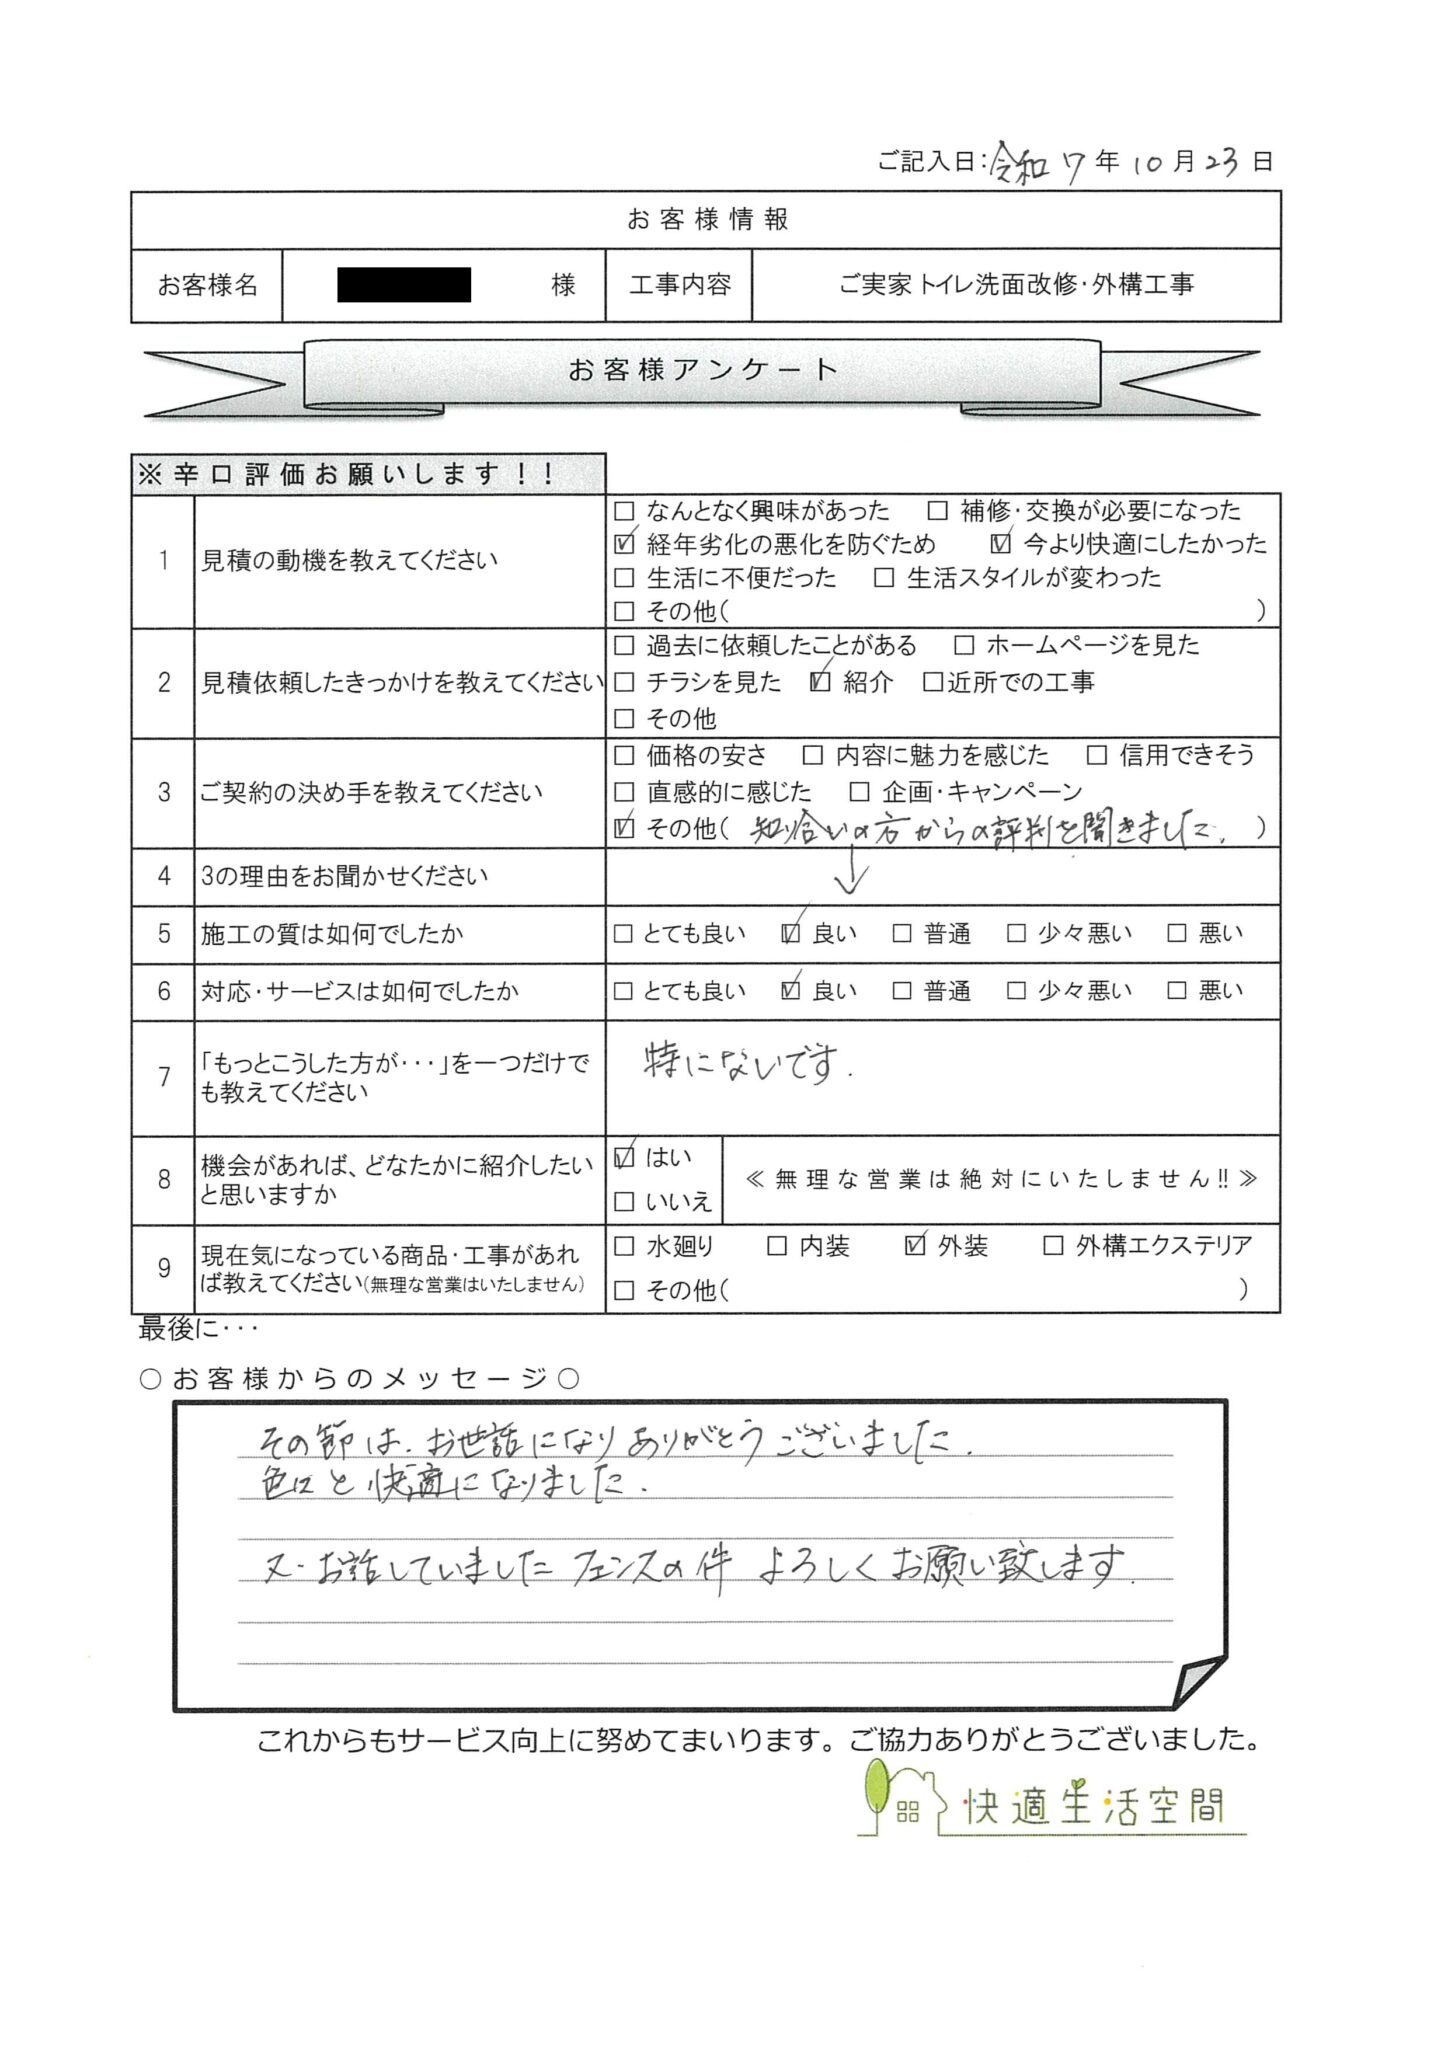 ご記入日：令和 7 年 10 月 23 日
お客様情報
お客様名 様 工事内容 ご実家 トイレ洗面改修・外構工事
お客様アンケート
※辛口評価お願いします！！
1 見積の動機を教えてください
□ なんとなく興味があった □ 補修・交換が必要になった
☑ 経年劣化の悪化を防ぐため ☑ 今より快適にしたかった
□ 生活に不便だった □ 生活スタイルが変わった
□ その他（ ）
2 見積依頼したきっかけを教えてください
□ 過去に依頼したことがある □ ホームページを見た
□ チラシを見た ☑ 紹介 □近所での工事
□ その他
3 ご契約の決め手を教えてください
□ 価格の安さ □ 内容に魅力を感じた □ 信用できそう
□ 直感的に感じた □ 企画・キャンペーン
☑ その他（ 知り合いの方からの評判を聞きました。 ）
4 3の理由をお聞かせください ↓
5 施工の質は如何でしたか □ とても良い ☑ 良い □ 普通 □ 少々悪い □ 悪い
6 対応・サービスは如何でしたか □ とても良い ☑ 良い □ 普通 □ 少々悪い □ 悪い
7 「もっとこうした方が・・・」を一つだけで
も教えてください
特にないです.
8 機会があれば、どなたかに紹介したい
と思いますか
☑ はい
□ いいえ
≪無理な営業は絶対にいたしません!!≫
9 現在気になっている商品・工事があれ
ば教えてください（無理な営業はいたしません）
□ 水廻り □ 内装 ☑ 外装 □ 外構エクステリア
□ その他（ ）
最後に・・・
○お客様からのメッセージ○
その節は、お世話になりありがとうございました.
色々と快適になりました.
又、お話していましたフェンスの件 よろしくお願い致します.
これからもサービス向上に努めてまいります。ご協力ありがとうございました。
快適生活空間